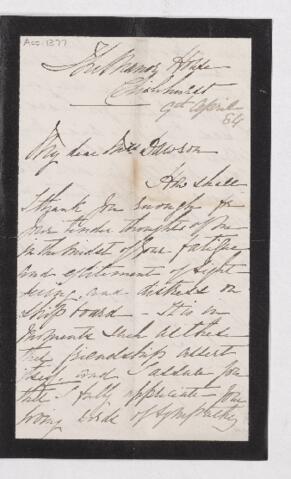 Acc. 1377
The Manor House
Chislehurst
9th April
84
My dear Mrs Dawson
How shall
I thank you enough for
your tender thoughts of me
in the midst of your fatigue
and excitement of sight
seeing, and distress on
ship board - It is in
moments such as these
true friendship assert
itself, and I assure you
that I fully appreciate your
loving words of sympathy